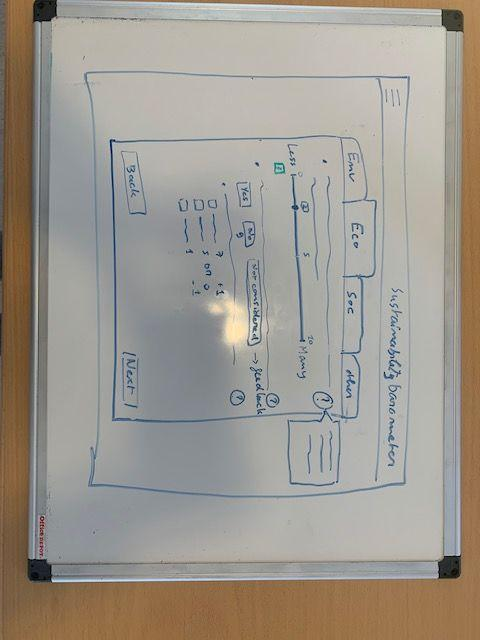 Sustainability barometer
Env Eco Soc other
?
Less 0 2 5 20 Many
2
Yes No Not considered → feedback ?
0
?
7 +1
5 on 0
1 -1
Back Next
Office DEPOT